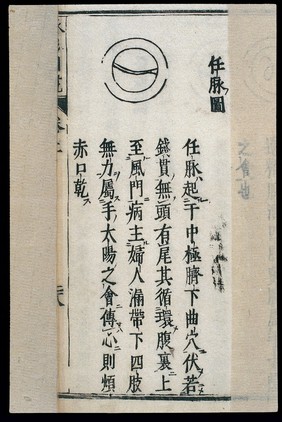 任脉圖
任脉起于中極臍下曲穴伏若
錢貫無頭有尾其循環腹裏上
至風門病主婦人漏帶下四肢
無力屬手太陽之會傳心則煩
赤口乾
之會也